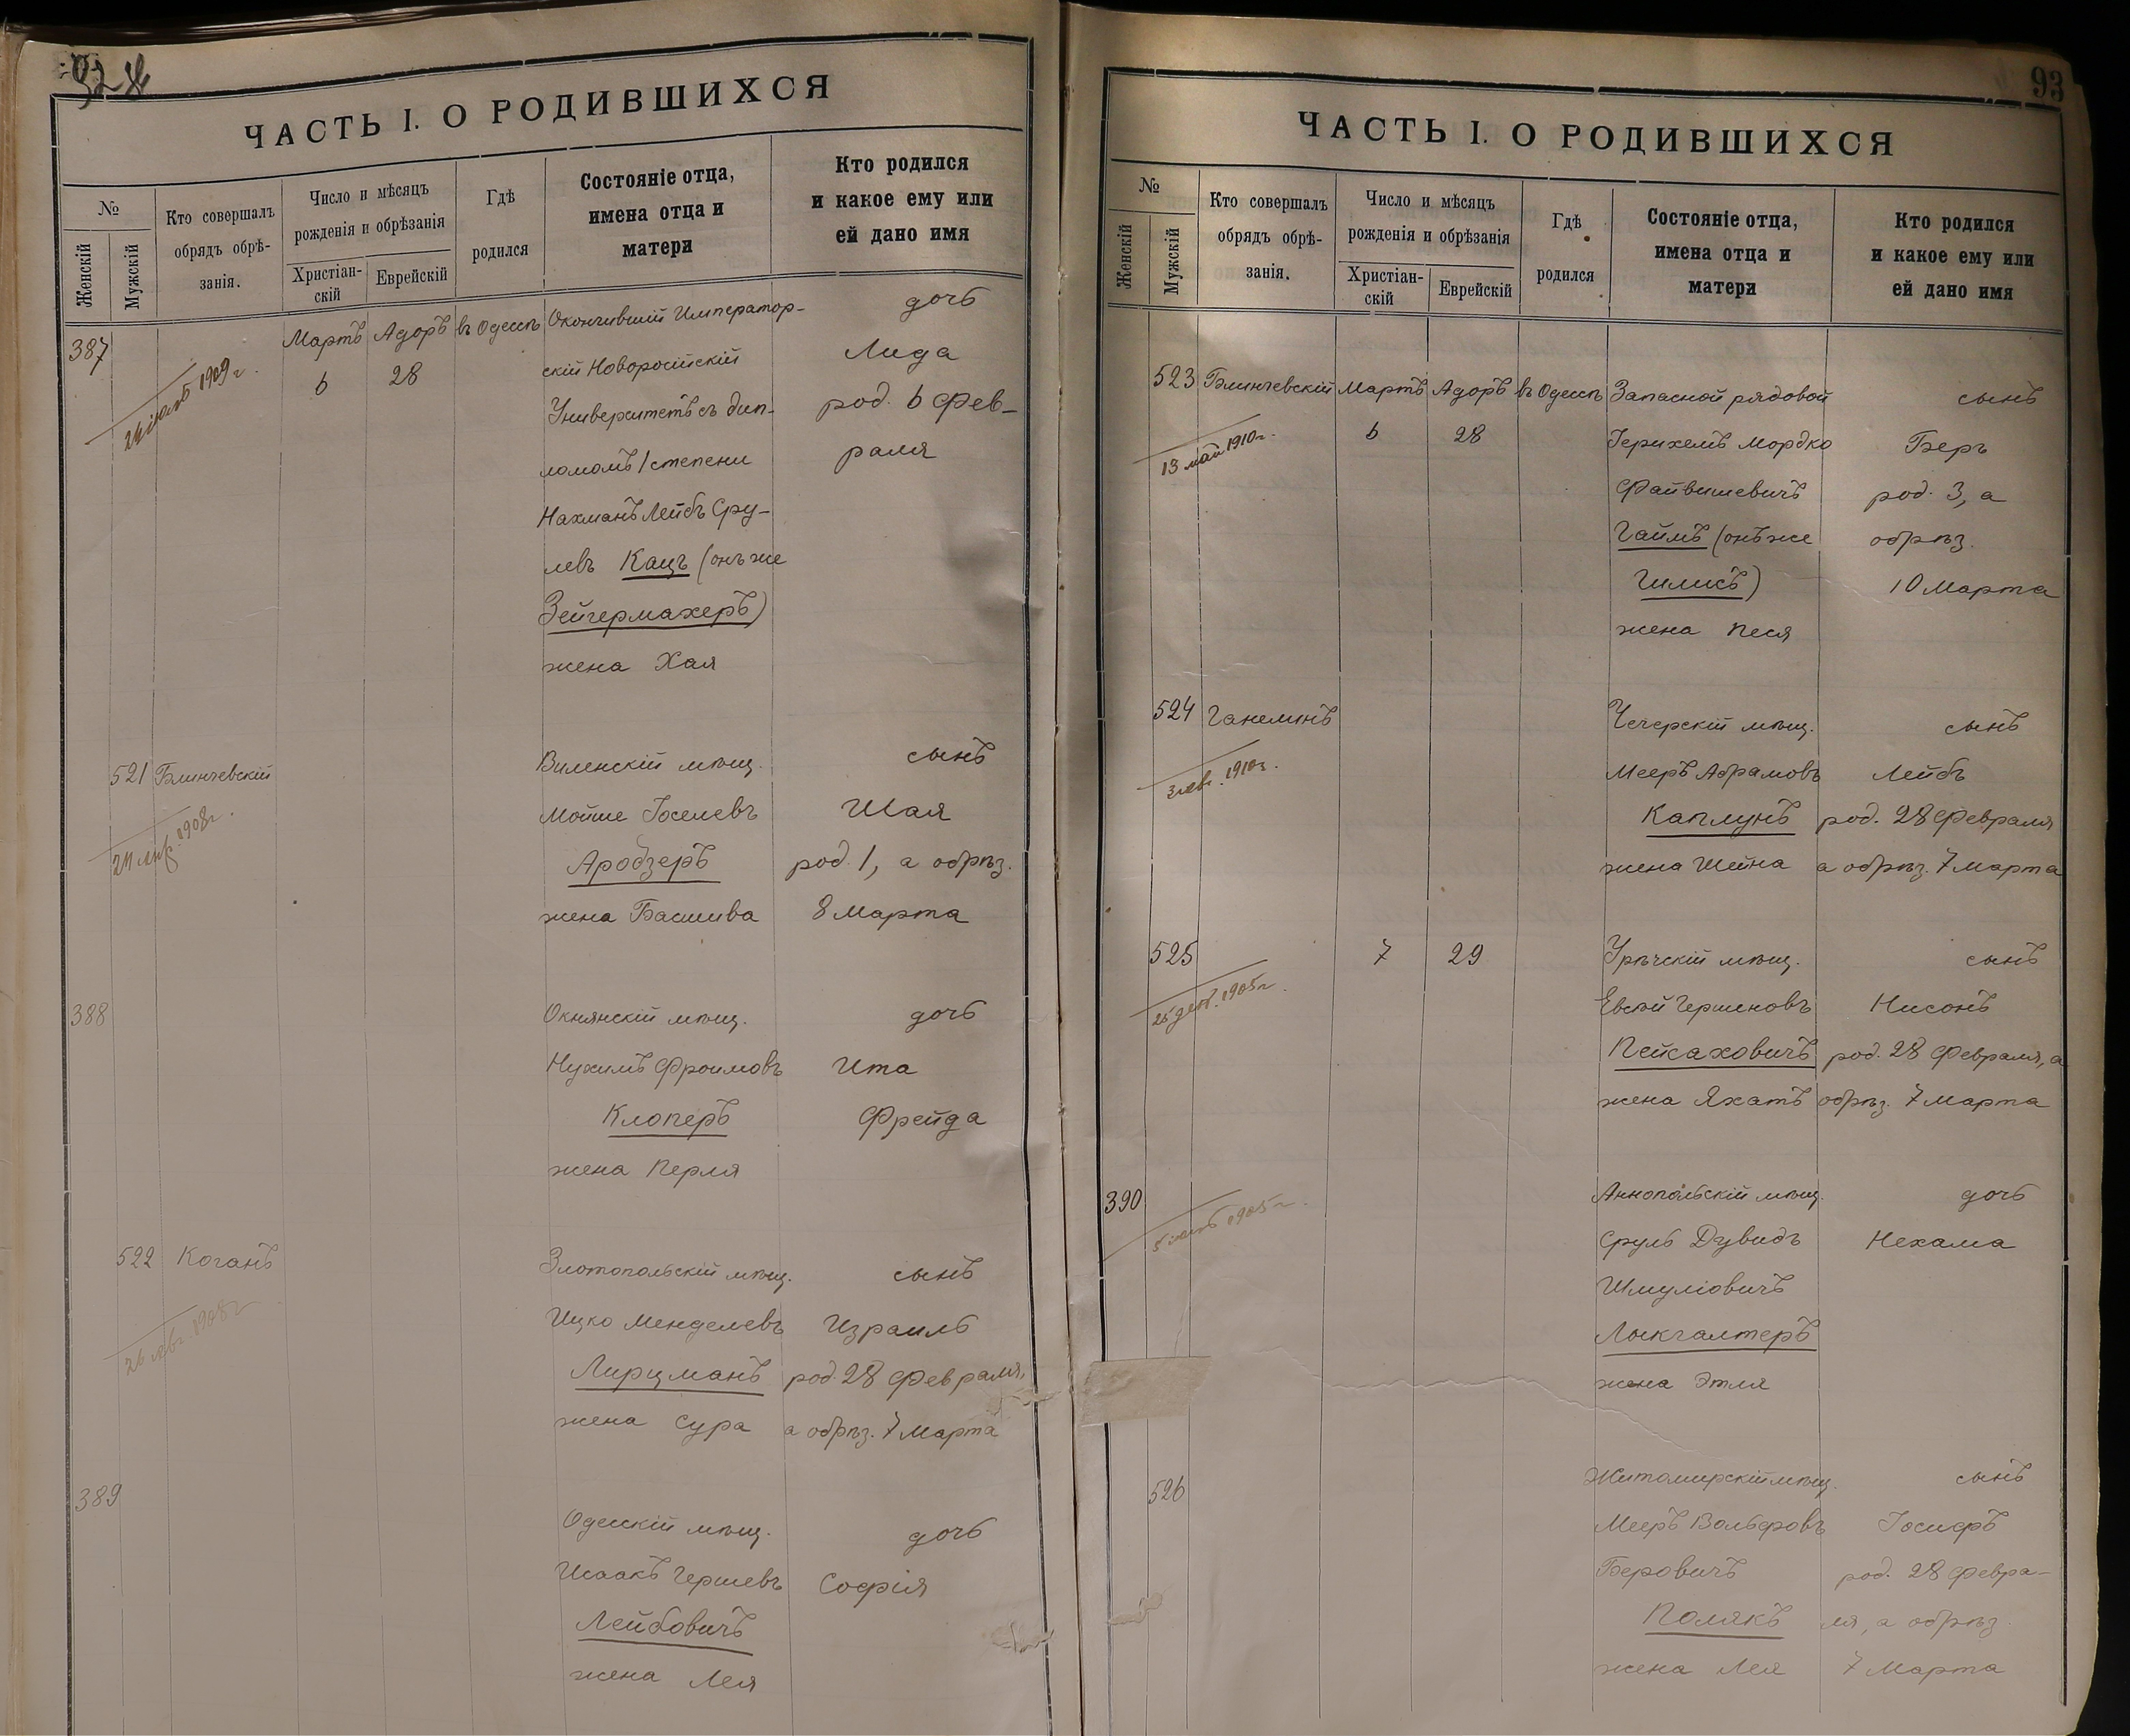 ЧАСТЬ I. О РОДИВШИХСЯ
№
Женскій
Мужскій
Кто совершалъ
обрядъ обрѣ-
занія.
Число и мѣсяцъ
рожденія и обрѣзанія
Христіан-
скій
Еврейскій
Гдѣ
родился
Состояніе отца,
имена отца и
матери
Кто родился
и какое ему или
ей дано имя
387
1909 г.
Мартъ Адаръ въ Одессѣ
6 28
Окончившій Император-
скій Новоросійскій
Университетъ съ дип-
ломомъ I степени
Нахманъ Лейбъ Сру-
левъ Кацъ (онъ же
Зейгермахеръ)
жена Хая
дочь
Лида
род. 6 Фев-
раля
521 Блинчевскій
24 апр. 1908 г.
Виленскій мѣщ.
Мойше Іоселевъ
Ародзеръ
жена Басшива
сынъ
Шая
род. 1, а обрѣз.
8 Марта
388
Окнянскій мѣщ.
Нухимъ Фроимовъ
Клоперъ
жена Перля
дочь
Ита
Фрейда
522 Коганъ
26 1908 г.
Златопольскій мѣщ.
Ицко Менделевъ
Лирцманъ
жена Сура
сынъ
Израиль
род. 28 Февраля,
а обрѣз. 7 Марта
389
Одесскій мѣщ.
Исаакъ Гершевъ
Лейбовичъ
жена Лея
дочь
Софія
93
ЧАСТЬ I. О РОДИВШИХСЯ
№
Женскій
Мужскій
Кто совершалъ
обрядъ обрѣ-
занія.
Число и мѣсяцъ
рожденія и обрѣзанія
Христіан-
скій
Еврейскій
Гдѣ
родился
Состояніе отца,
имена отца и
матери
Кто родился
и какое ему или
ей дано имя
523 Блинчевскій Мартъ Адаръ въ Одессѣ
13 май 1910 г.
6 28
Запасной рядовой
Іерихемъ Мордко
Файвишевичъ
Гаймъ (онъ же
жена Песя
сынъ
Беръ
род. 3, а
обрѣз.
10 Марта
524 Ганелинъ
1910 г.
Чечерскій мѣщ.
Мееръ Абрамовъ
Каплунъ
жена Шейна
сынъ
Лейбъ
род. 28 Февраля
а обрѣз. 7 Марта
525
25 дек. 1905 г.
7 29
Урѣчскій мѣщ.
Евсѣй Гершеновъ
Пейсаховичъ
жена Яхатъ
сынъ
Нисонъ
род. 28 Февраля, а
обрѣз. 7 Марта
390
5 1905 г.
Аннопольскій мѣщ.
Сруль Дувидъ
Шмуліовичъ
жена Этля
дочь
Нехама
526
Житомирскій мѣщ.
Мееръ Вольфовъ
Беровичъ
Полякъ
жена Лея
сынъ
Іосифъ
род. 28 Февра-
ля, а обрѣз.
7 Марта